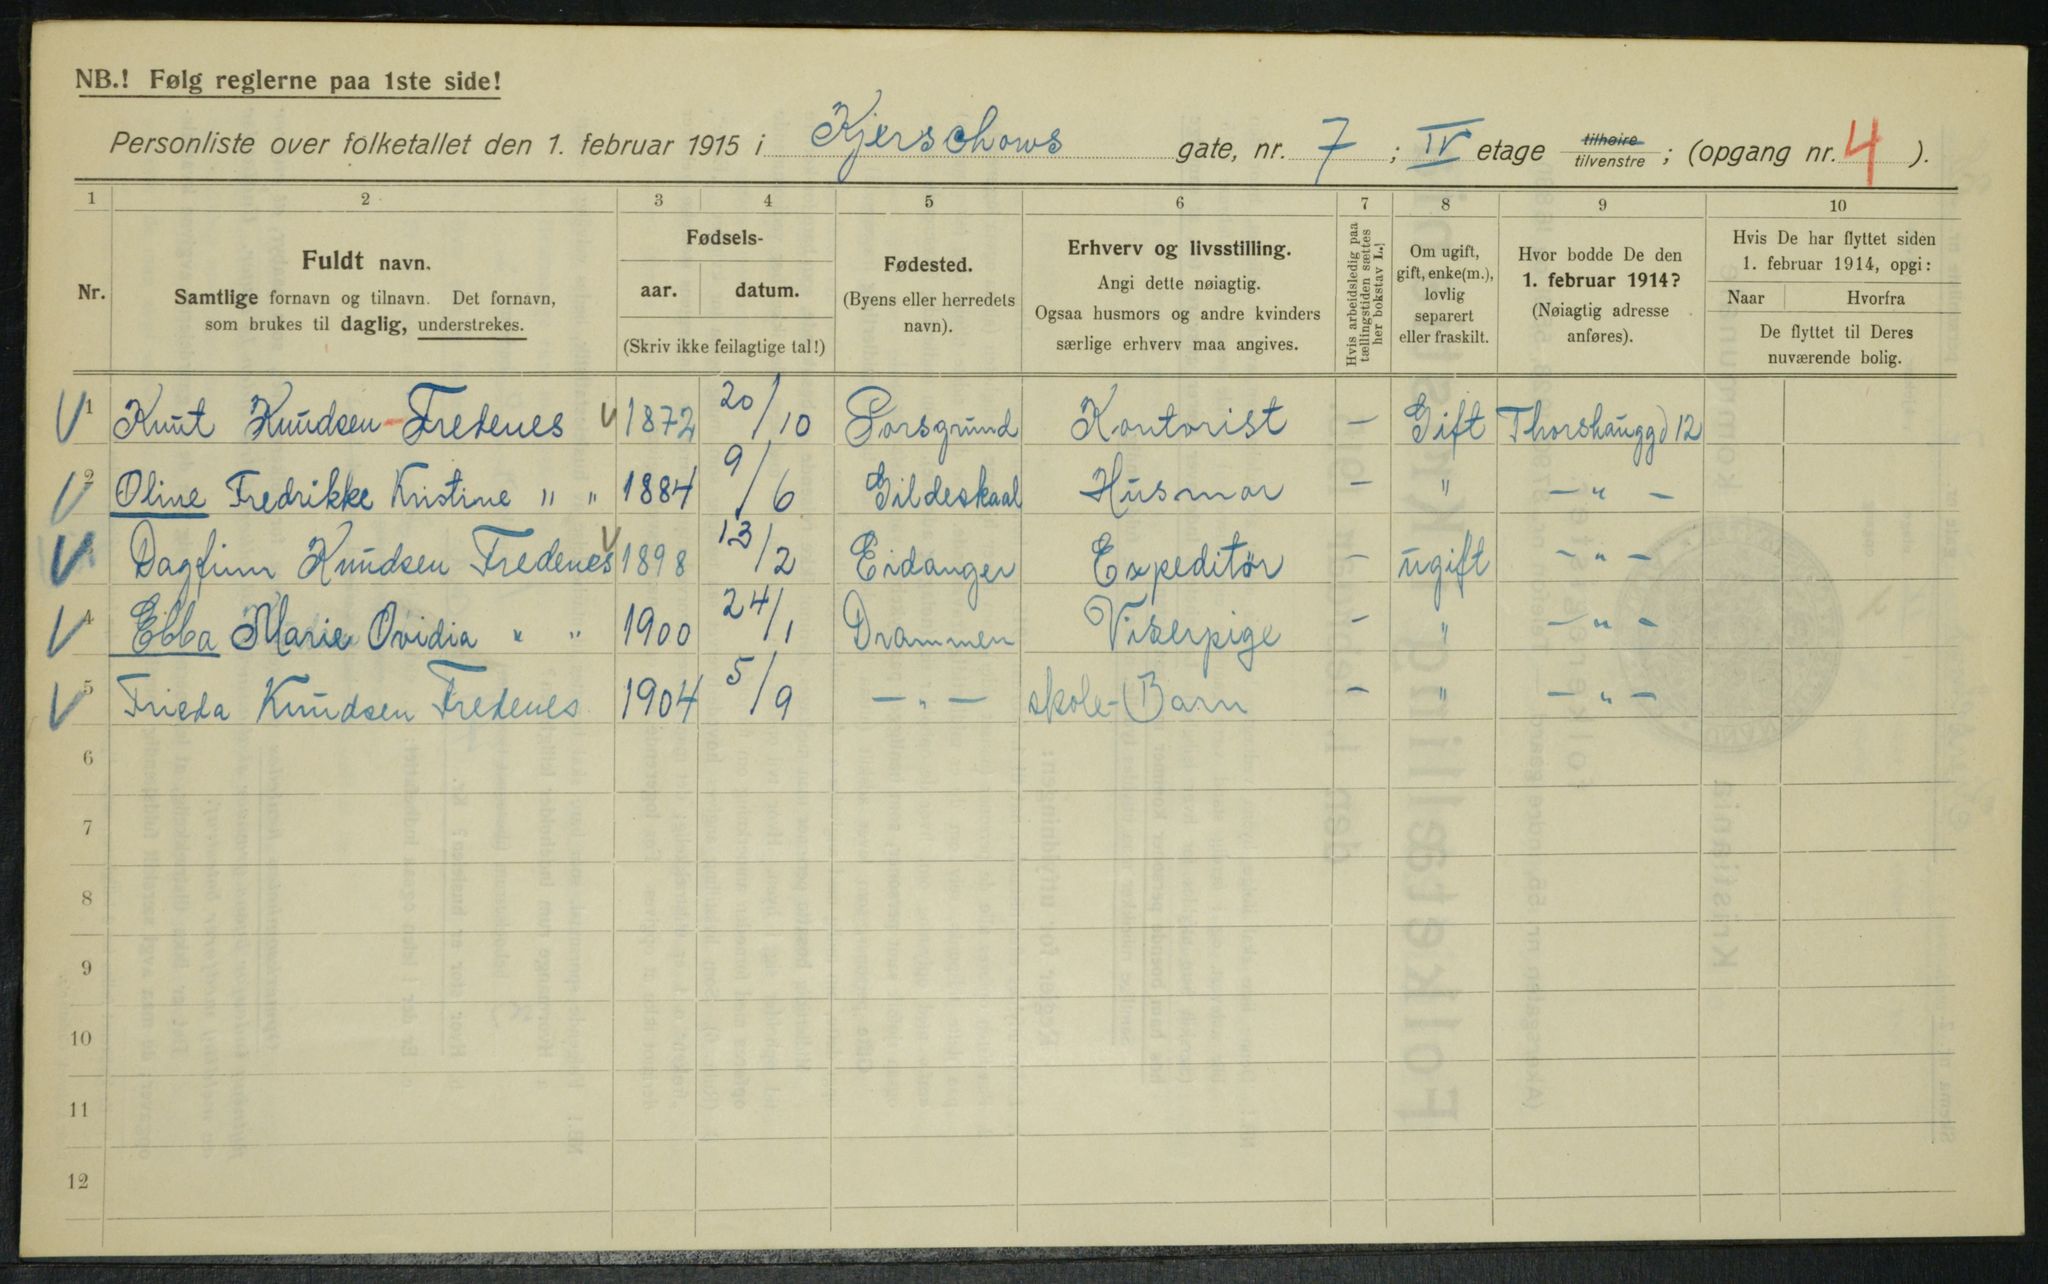 NB.! Følg reglerne paa 1ste side!
Personliste over folketallet den 1. februar 1915 i Kjerschows gate, nr. 7 ; IV etage tilhøire tilvenstre ; (opgang nr. 4 ).
1 2 3 4 5 6 7 8 9 10
Nr.
Fuldt navn.
Samtlige fornavn og tilnavn. Det fornavn,
som brukes til daglig, understrekes.
Fødsels-
aar. datum.
(Skriv ikke feilagtige tal!)
Fødested.
(Byens eller herredets
navn).
Erhverv og livsstilling.
Angi dette nøiagtig.
Ogsaa husmors og andre kvinders
særlige erhverv maa angives.
Hvis arbeidsledig paa
tællingstiden sættes
her bokstav L.]
Om ugift,
gift, enke(m.),
lovlig
separert
eller fraskilt.
Hvor bodde De den
1. februar 1914?
(Nøiagtig adresse
anføres).
Hvis De har flyttet siden
1. februar 1914, opgi:
Naar Hvorfra
De flyttet til Deres
nuværende bolig.
1 Knut Knudsen Fredenes 1872 20/10 Porsgrund Kontorist — Gift Thorshauggd 12
2 Oline Fredrikke Kristine " " 1884 9/6 Gildeskaal Husmor — " — " —
3 Dagfinn Knudsen Fredenes 1898 13/2 Eidanger Expeditør — ugift — " —
4 Ebba Marie Ovidia " " 1900 24/1 Drammen Viserpige — " — " —
5 Frieda Knudsen Fredenes 1904 5/9 — " — skole-Barn — " — " —
6
7
8
9
10
11
12